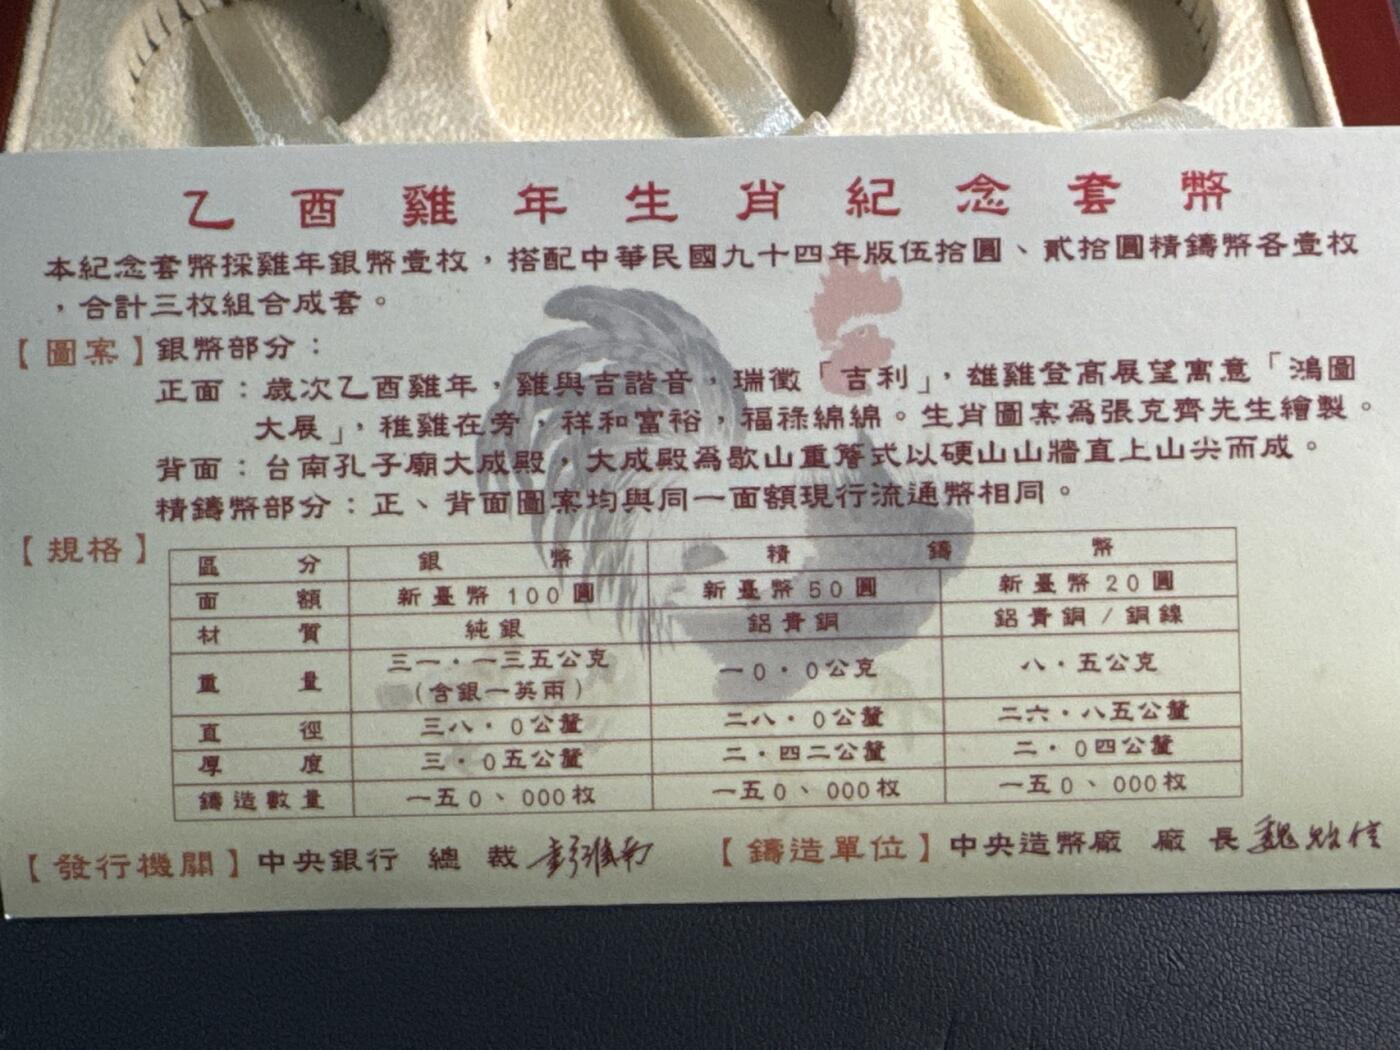 乙酉雞年生肖紀念套幣
本紀念套幣採雞年銀幣壹枚，搭配中華民國九十四年版伍拾圓、貳拾圓精鑄幣各壹枚
，合計三枚組合成套。
【圖案】銀幣部分：
正面：歲次乙酉雞年，雞與吉諧音，瑞徵「吉利」，雄雞登高展望寓意「鴻圖
大展」，稚雞在旁，祥和富裕，福祿綿綿。生肖圖案為張克齊先生繪製。
背面：台南孔子廟大成殿，大成殿為歇山重簷式以硬山山牆直上山尖而成。
精鑄幣部分：正、背面圖案均與同一面額現行流通幣相同。
【規格】
區分 銀幣 精鑄幣
面額 新臺幣100圓 新臺幣50圓 新臺幣20圓
材質 純銀 鋁青銅 鋁青銅/銅鎳
重量 三一．一三五公克 一0．0公克 八．五公克
（含銀一英兩）
直徑 三八．0公釐 二八．0公釐 二六．八五公釐
厚度 三．0五公釐 二．四二公釐 二．0四公釐
鑄造數量 一五0、000枚 一五0、000枚 一五0、000枚
【發行機關】中央銀行 總裁 彭淮南 【鑄造單位】中央造幣廠 廠長